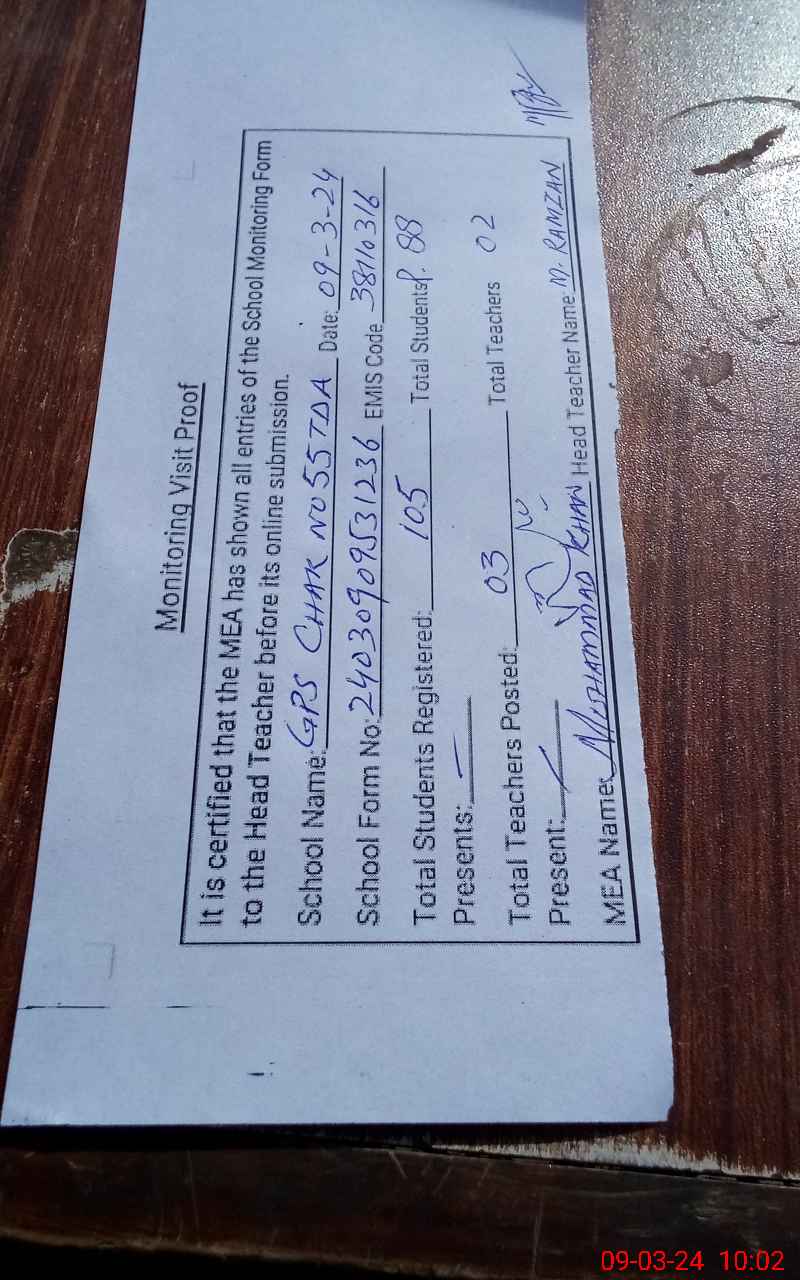 Monitoring Visit Proof
It is certified that the MEA has shown all entries of the School Monitoring Form
to the Head Teacher before its online submission.
School Name: GPS CHAK NO 55 TDA Date: 09-3-24
School Form No: 24030909531236 EMIS Code 38110316
Total Students Registered: 105 Total Students P. 88
Presents:
Total Teachers Posted: 03 Total Teachers 02
Present:
MEA Name: MUHAMMAD KHAN Head Teacher Name: M. RAMZAN
09-03-24 10:02